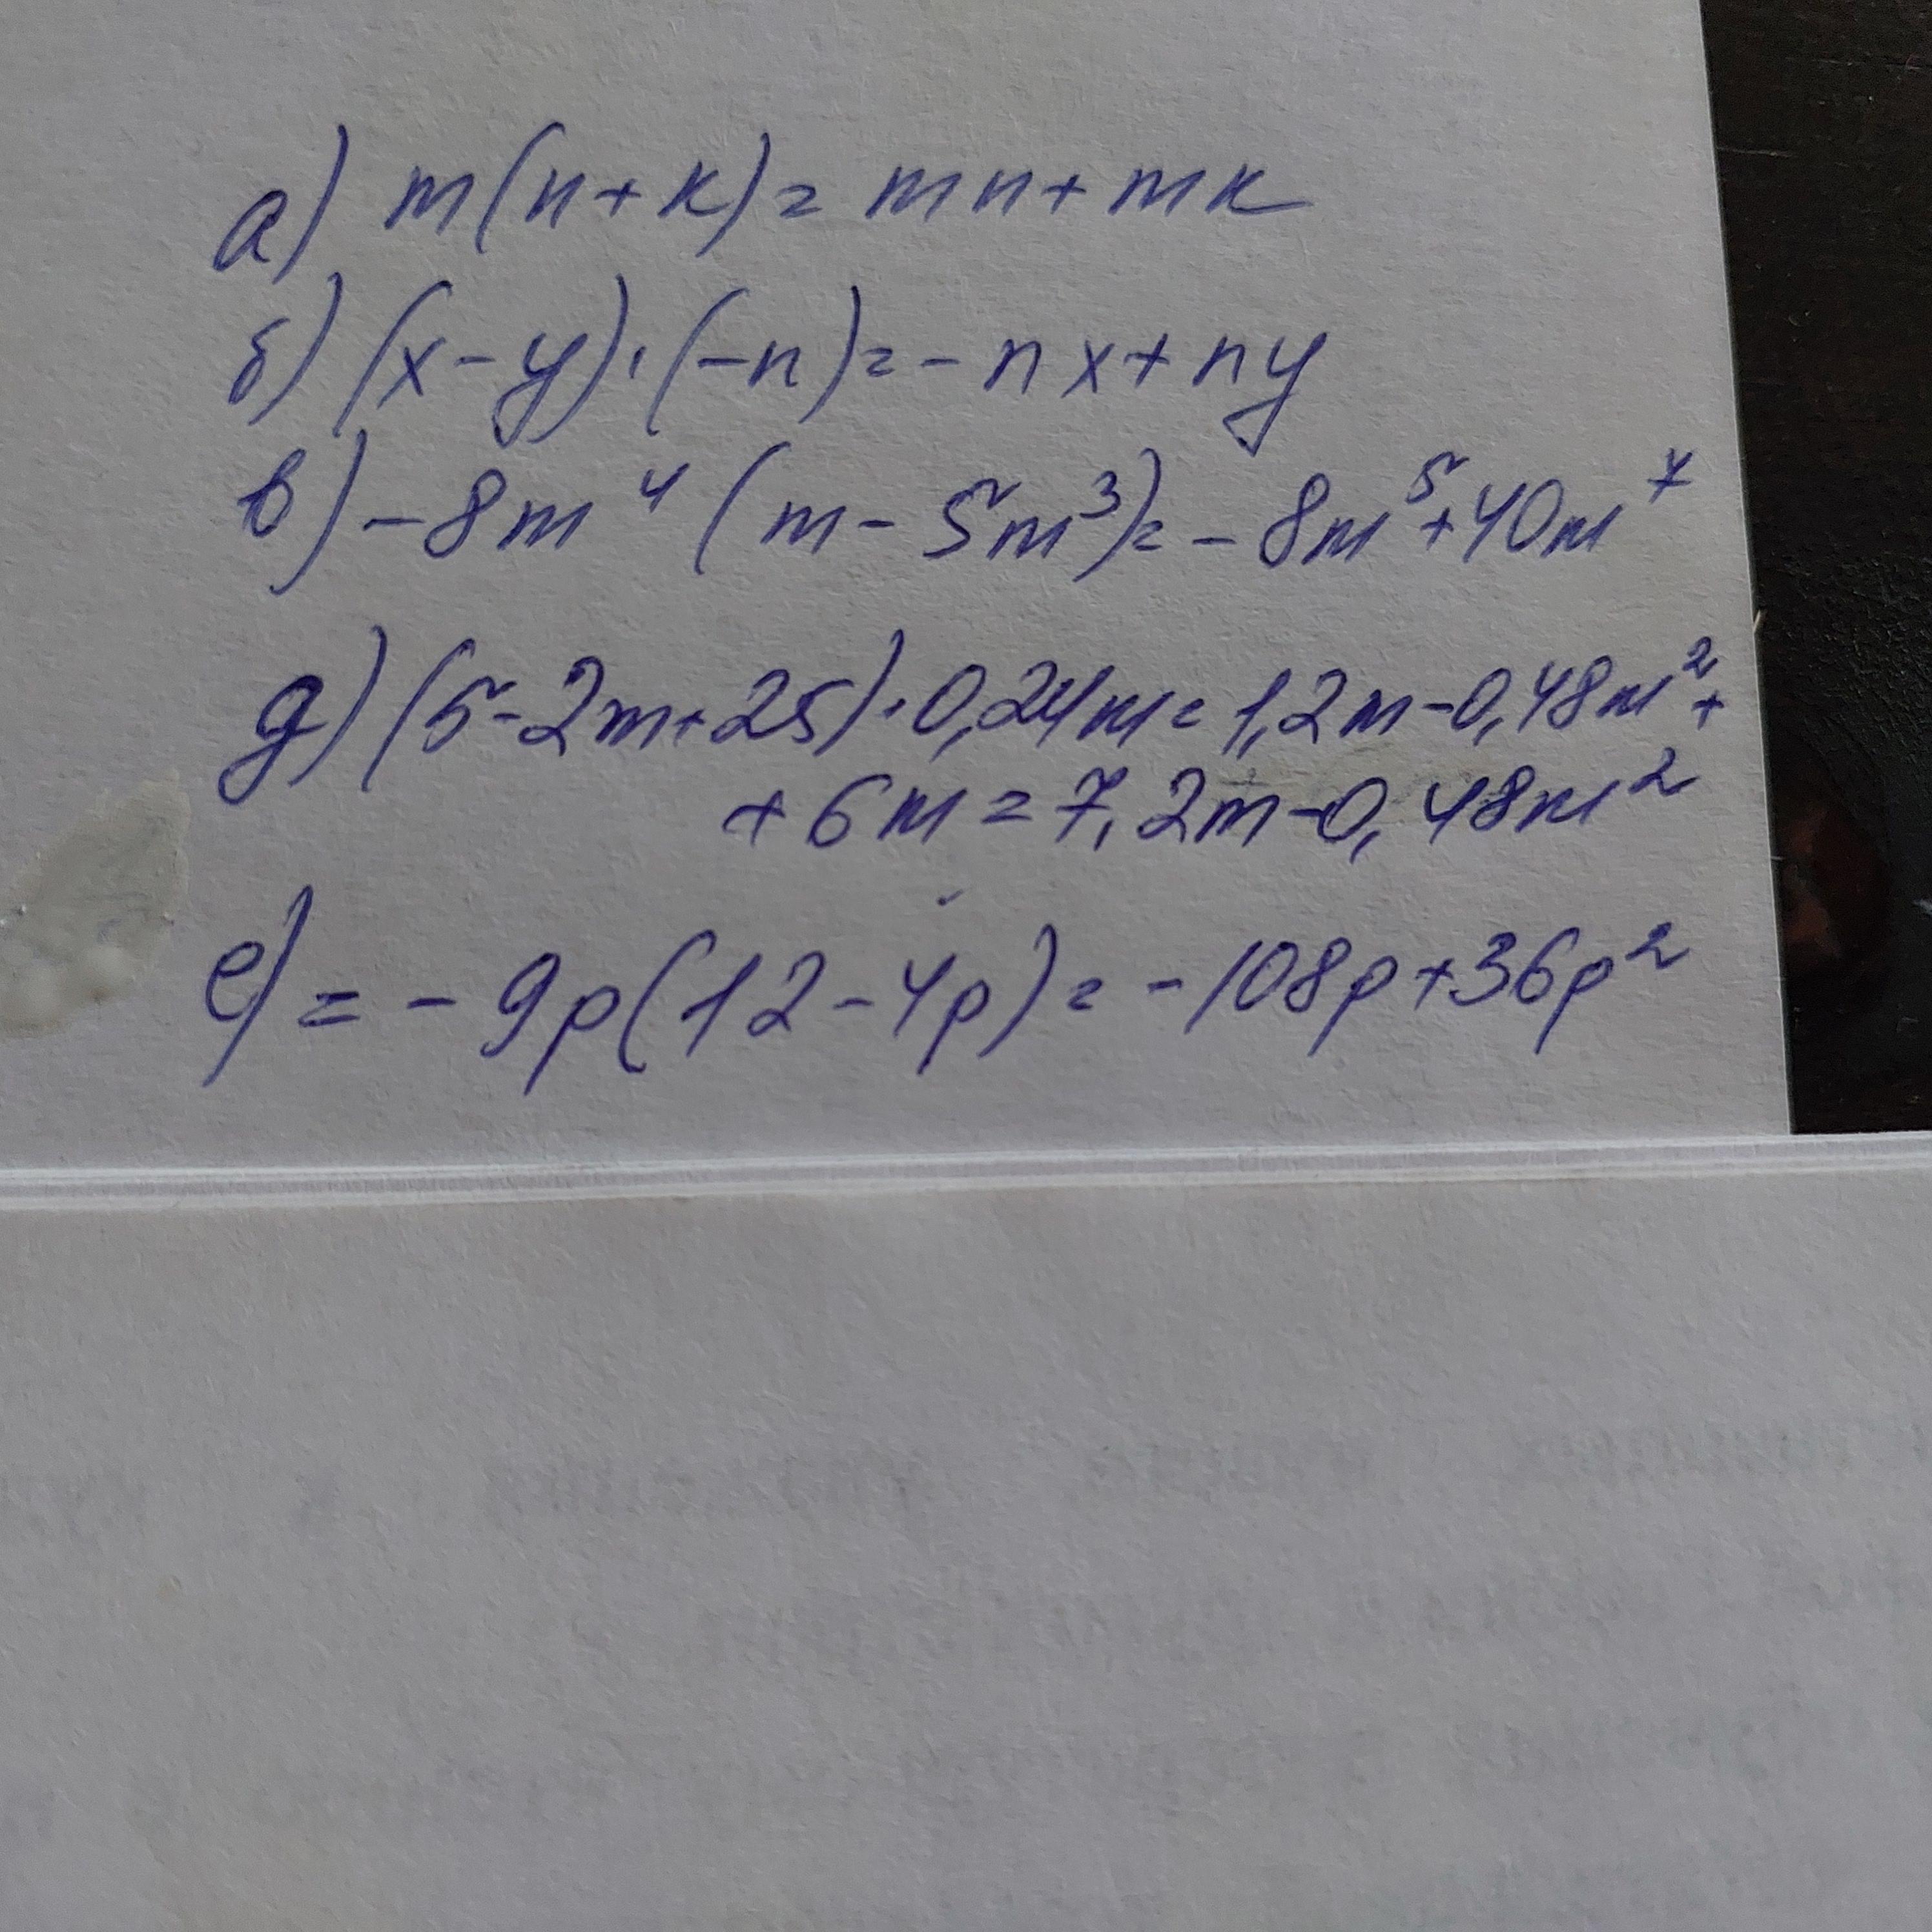 а) m(n+k)= mn+mk
б) (x-y)·(-n)=-nx+ny
в) -8m⁴(m-5m³)=-8m⁵+40m⁷
д) (5-2m+25)·0,24m=1,2m-0,48m²+
+6m=7,2m-0,48m²
е) =-9p(12-4p)=-108p+36p²